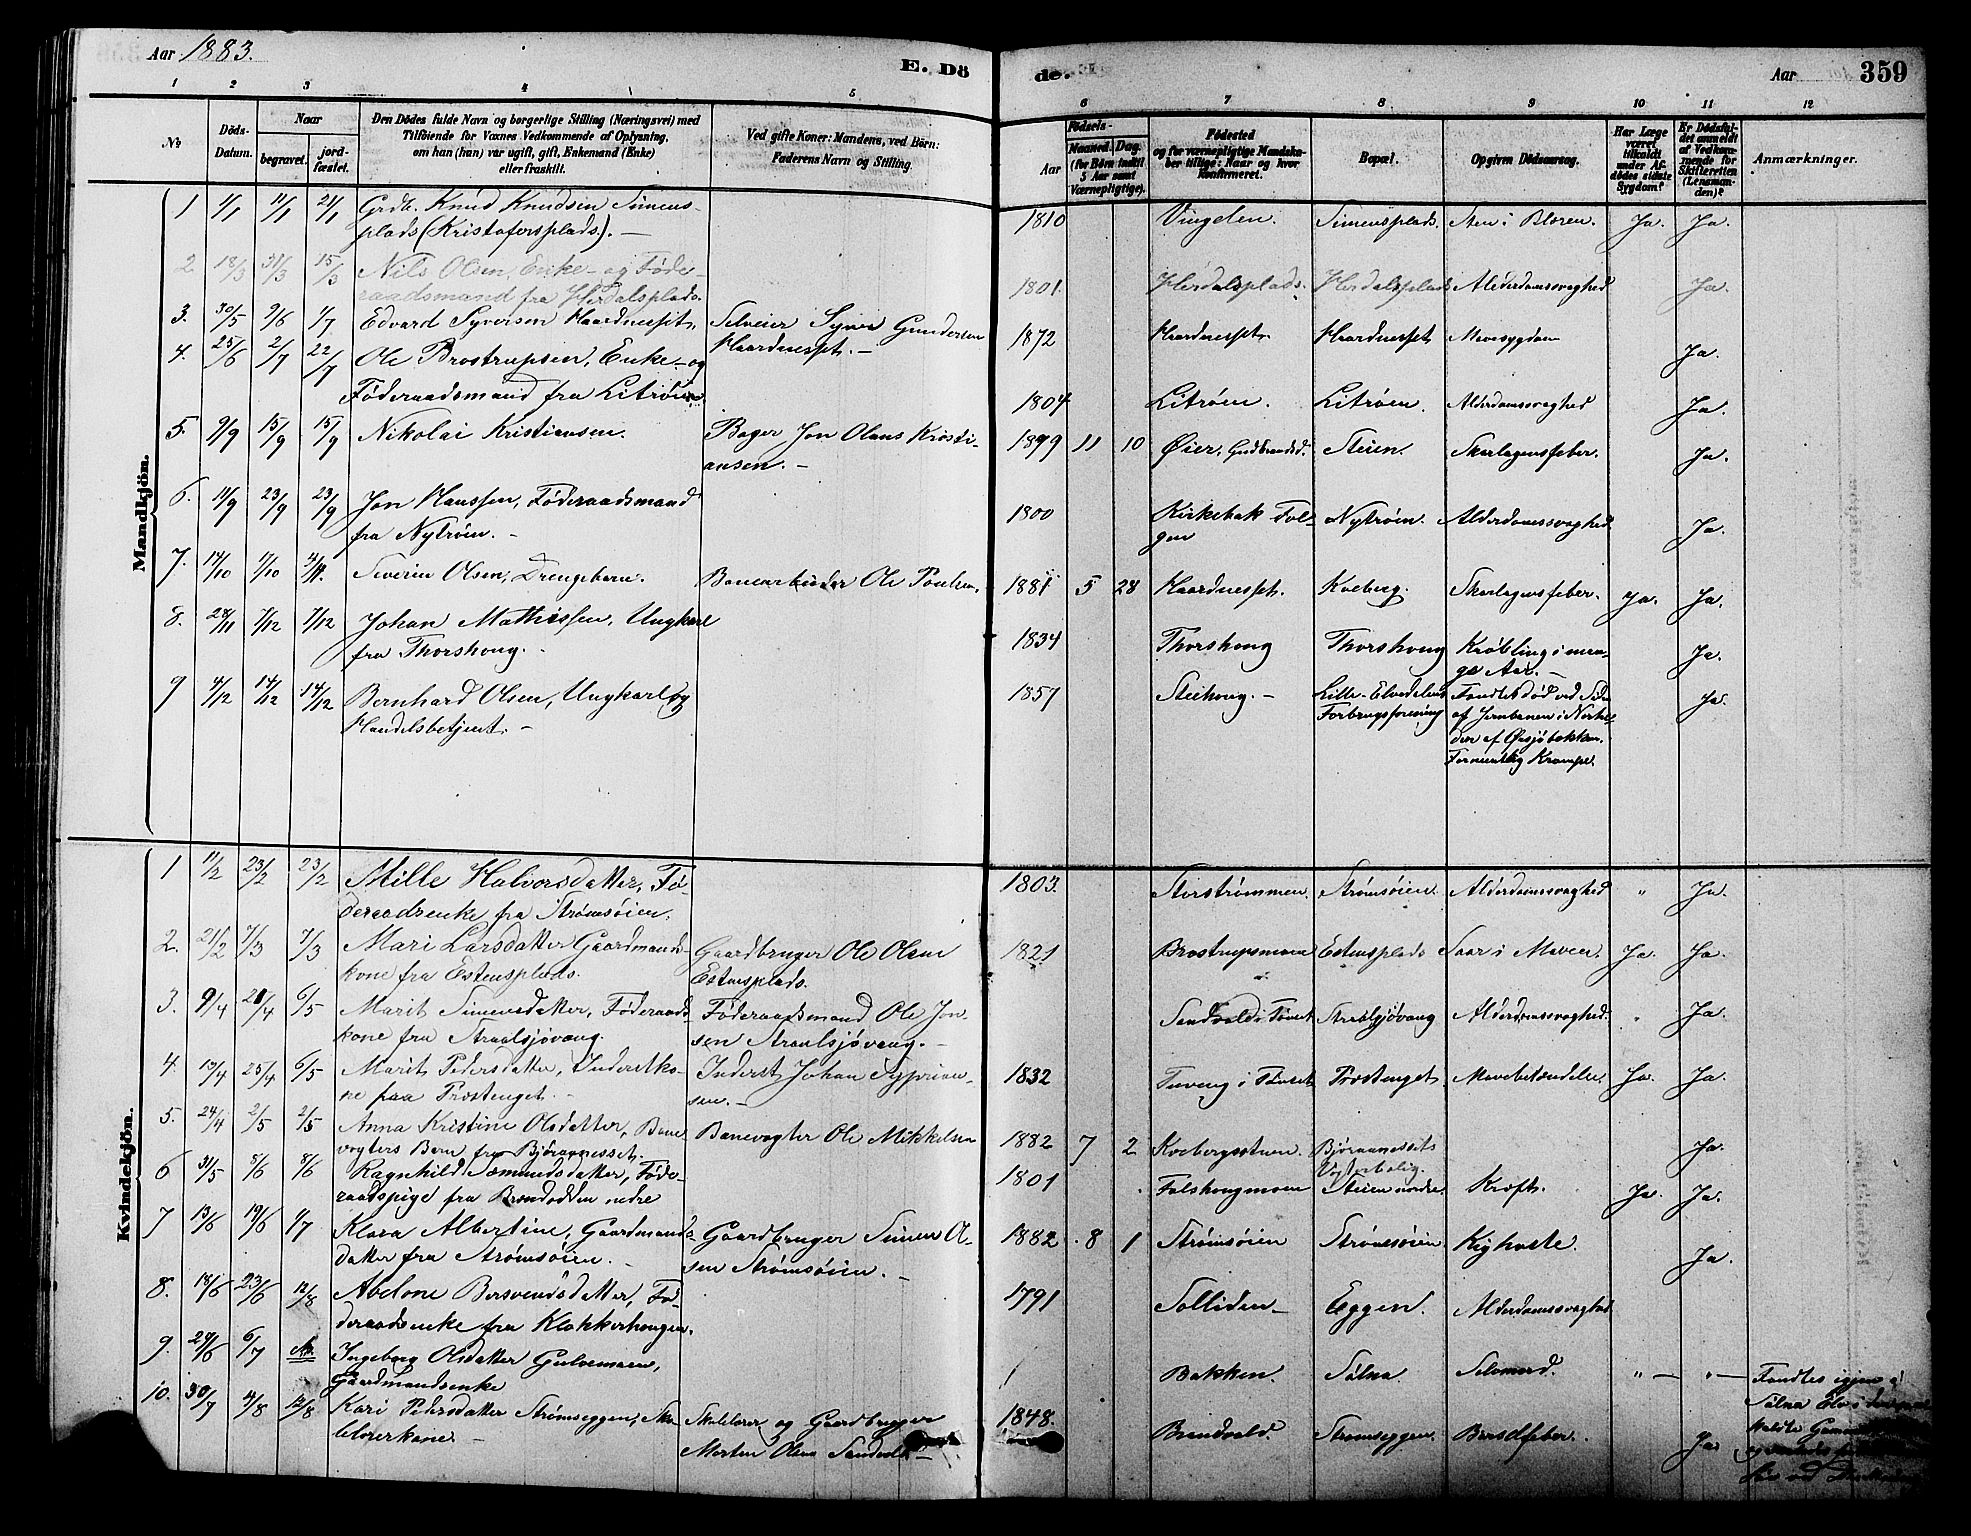 Aar 1883.
E. Dö
de.
Aar
359
1 2 3 4 5
6 7 8 9 10 11 12
No
Döds-Datum.
Naar
begravet.
jord-fæstet.
Den Dödes fulde Navn og borgerlige Stilling (Næringsvei) med
Tilföiende for Voxnes Vedkommende af Oplysning,
om han (hun) var ugift, gift, Enkemand (Enke)
eller fraskilt.
Ved gifte Koner: Mandens, ved Börn:
Faderens Navn og Stilling.
Födsels-
Aar
Maaned. Dag.
(for Börn indtil
5 Aar samt
Værnepligtige).
Födested
og for værnepligtige Mandskaber tillige: Naar og hvor
Konfirmeret.
Bopæl.
Opgiven Dødsaarsag.
Har Læge
været
tilkaldt
under Afdödes sidste
Sygdom?
Er Dödsfaldet anmeldt
af Vedkommende for
Skifteretten
(Lensmanden)?
Anmærkninger.
Mandkjön.
1 1/1 11/1 21/1 Grdb. Knud Knudsen Simens-
plads (Kristofersplads). —
1810 Vingelen. Simensplads. Sten i Blæren. Ja. Ja.
2 18/3 31/3 15/3 Nils Olsen, Enke- og Føde-
raadsmand fra Herdalsplads.
1801. Herdalsplads. Herdalsplads Alderdomssvaghed Ja.
3. 30/5 9/6 1/7 Edvard Syversen Haardnesset. Selveier Syver Gundersen
Haardnesset. —
1872 Haardnesset. Haardnesset Mavesygdom Ja.
4. 25/6 2/7 22/7 Ole Brostrupsen, Enke- og
Føderaadsmand fra Litrøien.
1804 Litrøen. Litrøen. Alderdomssvaghed Ja.
5. 9/9 15/9 15/9 Nikolai Kristiansen. Bager Jon Olaus Kristi-
ansen. —
11 10 Øier, Gudbrandsd. Steien. Skarlagensfeber. Ja.
6. 11/9 23/9 23/9 Jon Hanssen, Føderaadsmand
fra Nytrøen. —
1800 Kirkebak Fol-
gen Nytrøen. Alderdomssvaghed. Ja.
7. 14/10 Severin Olsen, Drengebarn. Banearbeider Ole Paulsen.
1881 5 28 Haardnesset. Koeberg. Skarlagensfeber. Ja. Ja.
8. 28/11 7/12 7/12 Johan Mathissen, Ungkarl
fra Thorshoug. —
1834 Thorshoug Thorshoug Krøbling i man-
ge Aar. — Ja.
9 4/12 14/12 14/12 Bernhard Olsen, Ungkarl og
Handelsbetjent. —
1857 Steihoug. — Lille-Elvedalens
Forbrugsforening Fandtes død ved Siden
af Jernbanen i Nærhe-
den af Øvsjøbækken.
Formentlig Krampe. Ja.
Kvindekjön.
1 11/2 23/2 23/2 Mille Halvorsdatter, Fø-
deraadsenke fra Strømsøien.
1803. Storstrømmen. Strømsøien. Alderdomssvaghed " Ja.
2. 21/2 7/3 7/3 Mari Larsdatter Gaardmands-
kone fra Estensplads. Gaardbruger Ole Olsen
Estensplads.
1821 Brostrupsmoen Estensplads Saar i Maven. Ja. Ja.
3. 9/4 21/4 6/5 Marit Simensdatter, Føderaads-
kone fra Straalsjøvang. Føderaadsmand Ole Jon-
sen Straalsjøvang. —
Sandvold i Tønset Straalsjøvang Alderdomssvaghed. " Ja.
4. 13/4 25/4 6/5 Marit Pedersdatter, Inderstko-
ne paa Præstenget. — Inderst Johan Syprian-
sen. —
1832 Tuveng i Tønset Præstenget. Mavebetændelse. Ja. Ja.
5. 24/4 2/5 2/5 Anna Kristine Olsdatter, Bane-
vogters Barn fra Bjøraanesset. Banevogter Ole Mikkelsen
1882 7 2 Koebergsstuen. Bjøraanessets
Vogterbolig. Ja.
6 31/5 8/6 8/6 Ragnhild Sæmundsdatter, Føde-
raadspige fra Brandodden nedre
1801 Folshougmoen Steien nordre. Kræft. Ja. Ja.
7 13/6 19/6 1/7 Klara Albertine, Gaardmands-
datter fra Strømsøien. — Gaardbruger Simen O-
sen Strømsøien. —
1882 8 1 Strømsøien Strømsøien. Kighoste. Ja.
8. 18/6 23/6 12/8 Abelone Bersvendsdatter, Fø-
deraadsenke fra Klokkerhougen.
1791 Solliden — Eggen. Alderdomssvaghed
9. 29/6 6/7 Ingeborg Olsdatter Gulvemoen,
Gaardmandsenke
Bakken. Sølna Selvmord. " — " — Fandtes igjen i
Sølna Elv i
10. 30/7 4/8 12/8 Kari Pedersdatter Strømseggen, Sko-
lelærerkone. — Skolelærer og Gaardbruger
Morten Olsen Sandvold —
1848. Brandvold. Strømseggen. Barselfeber. Ja.